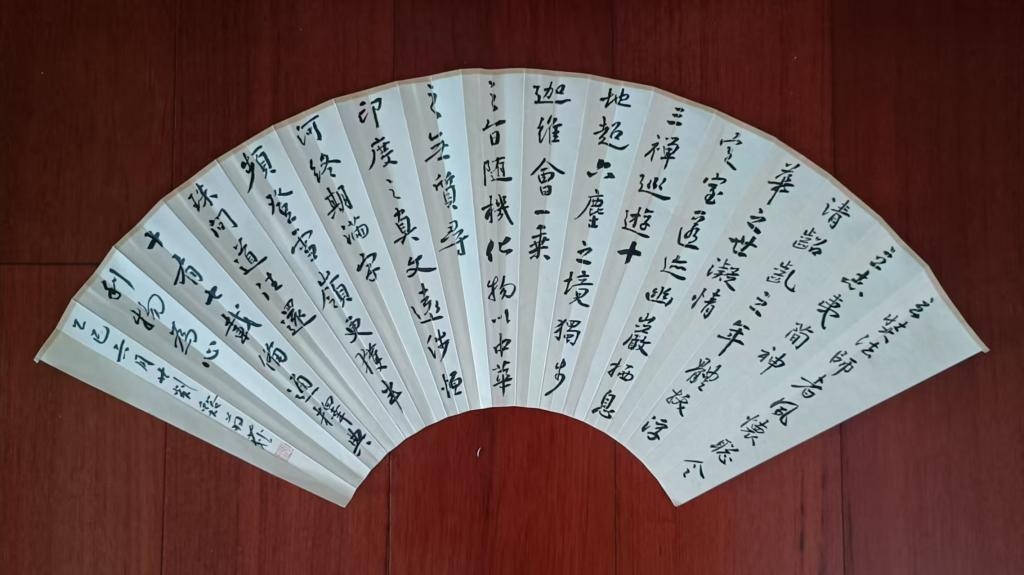 玄奘法師者夙懷聰令
立志夷簡神
清齠齔之年體拔浮
華之世凝情
定室匿迹幽巖栖息
三禪巡遊十
地超六塵之境獨步
迦維會一乘
之旨随機化物以中華
之無質尋
印度之真文遠涉恒
河終期滿字
頻登雪嶺更獲半
珠問道往還
十有七載備通釋典
利物為心
乙巳六月廿